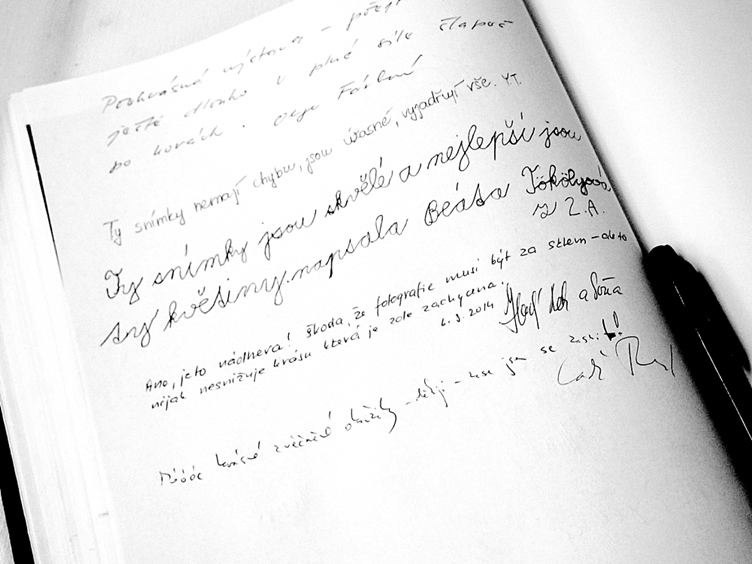 Překrásná výstava –
ještě dlouho v plné síle šlapat
po horách.
Ty snímky nemají chybu, jsou úžasné, vyjadřují vše. YT.
Ty snímky jsou skvělé a nejlepší jsou
ty květiny. napsala Beáta Tökölyová
z Z.A.
Ano, je to nádhera! Škoda, že fotografie musí být za sklem – ale to
nijak nesnižuje krásu která je zde zachycena.
6.3.2014
Móóóc krásné zvěčněné okamžiky – – zase jsem se zasnil!